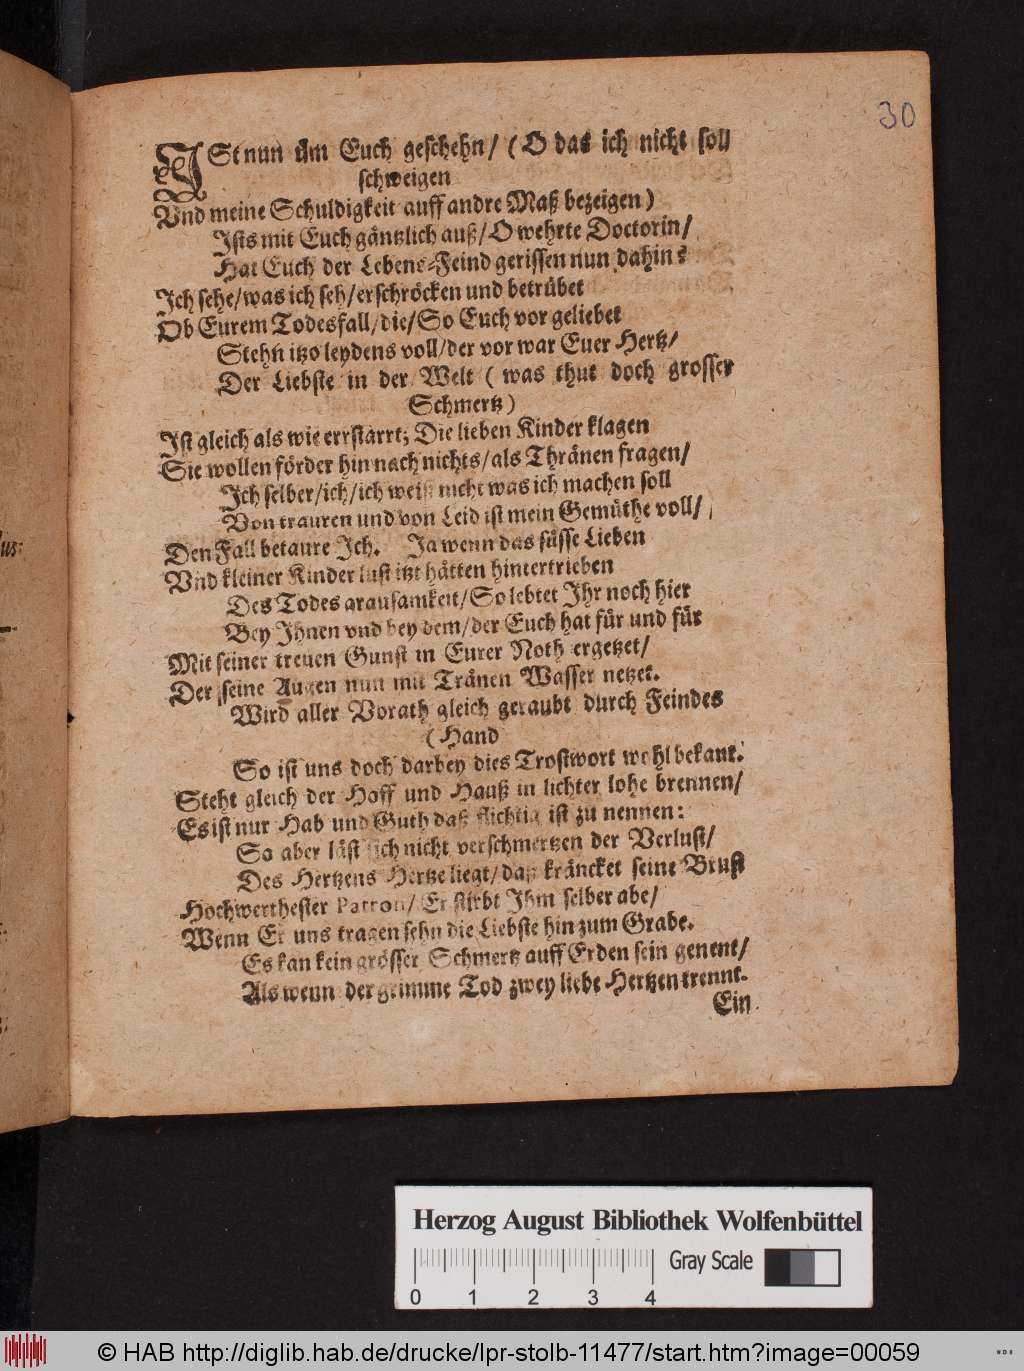 30
ISt nun üm Euch geschehn/ (O das ich nicht soll
schweigen
Vnd meine Schuldigkeit auff andre Maß bezeigen)
Ists mit Euch gäntzlich auß/ O wehrte Doctorin/
Hat Euch der Lebens-Feind gerissen nun dahin?
Ich sehe/ was ich seh/ erschröcken und betrübet
Ob Eurem Todesfall/ die/ So Euch vor geliebet
Stehn itzo leydens voll/ der vor war Euer Hertz/
Der Liebste in der Welt (was thut doch grosser
Schmertz)
Ist gleich als wie errstarrt; Die lieben Kinder klagen
Sie wollen förder hin nach nichts/ als Thränen fragen/
Ich selber/ ich/ ich weiß nicht was ich machen soll
Von trauren und von Leid ist mein Gemüthe voll/
Den Fall betaure Ich. Ja wenn das süsse Lieben
Vnd kleiner Kinder lust itzt hätten hintertrieben
Des Todes grausamkeit/ So lebtet Ihr noch hier
Bey Ihnen vnd bey dem/ der Euch hat für und für
Mit seiner treuen Gunst in Eurer Noth ergetzet/
Der seine Augen nun mit Tränen Wasser netzet.
Wird aller Vorath gleich geraubt durch Feindes
(Hand
So ist uns doch darbey dies Trostwort wohl bekant.
Steht gleich der Hoff und Hauß in lichter lohe brennen/
Es ist nur Hab und Guth daß flichtig ist zu nennen:
So aber läst sich nicht verschmertzen der Verlust/
Des Hertzens Hertze liegt/ daß kräncket seine Brust
Hochwerthester Patron/ Er stirbt Ihm selber abe/
Wenn Er uns tragen sehn die Liebste hin zum Grabe.
Es kan kein grösser Schmertz auff Erden sein genent/
Als wenn der grimme Tod zwey liebe Hertzen trennt.
Ein
Herzog August Bibliothek Wolfenbüttel
Gray Scale
0 1 2 3 4
© HAB http://diglib.hab.de/drucke/lpr-stolb-11477/start.htm?image=00059